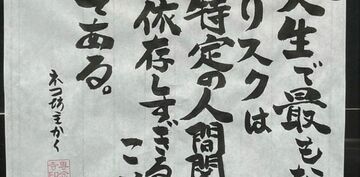 人生で最も
リスクは
特定の人間関
依存しすぎるこ
である。
ネコ坊主かく